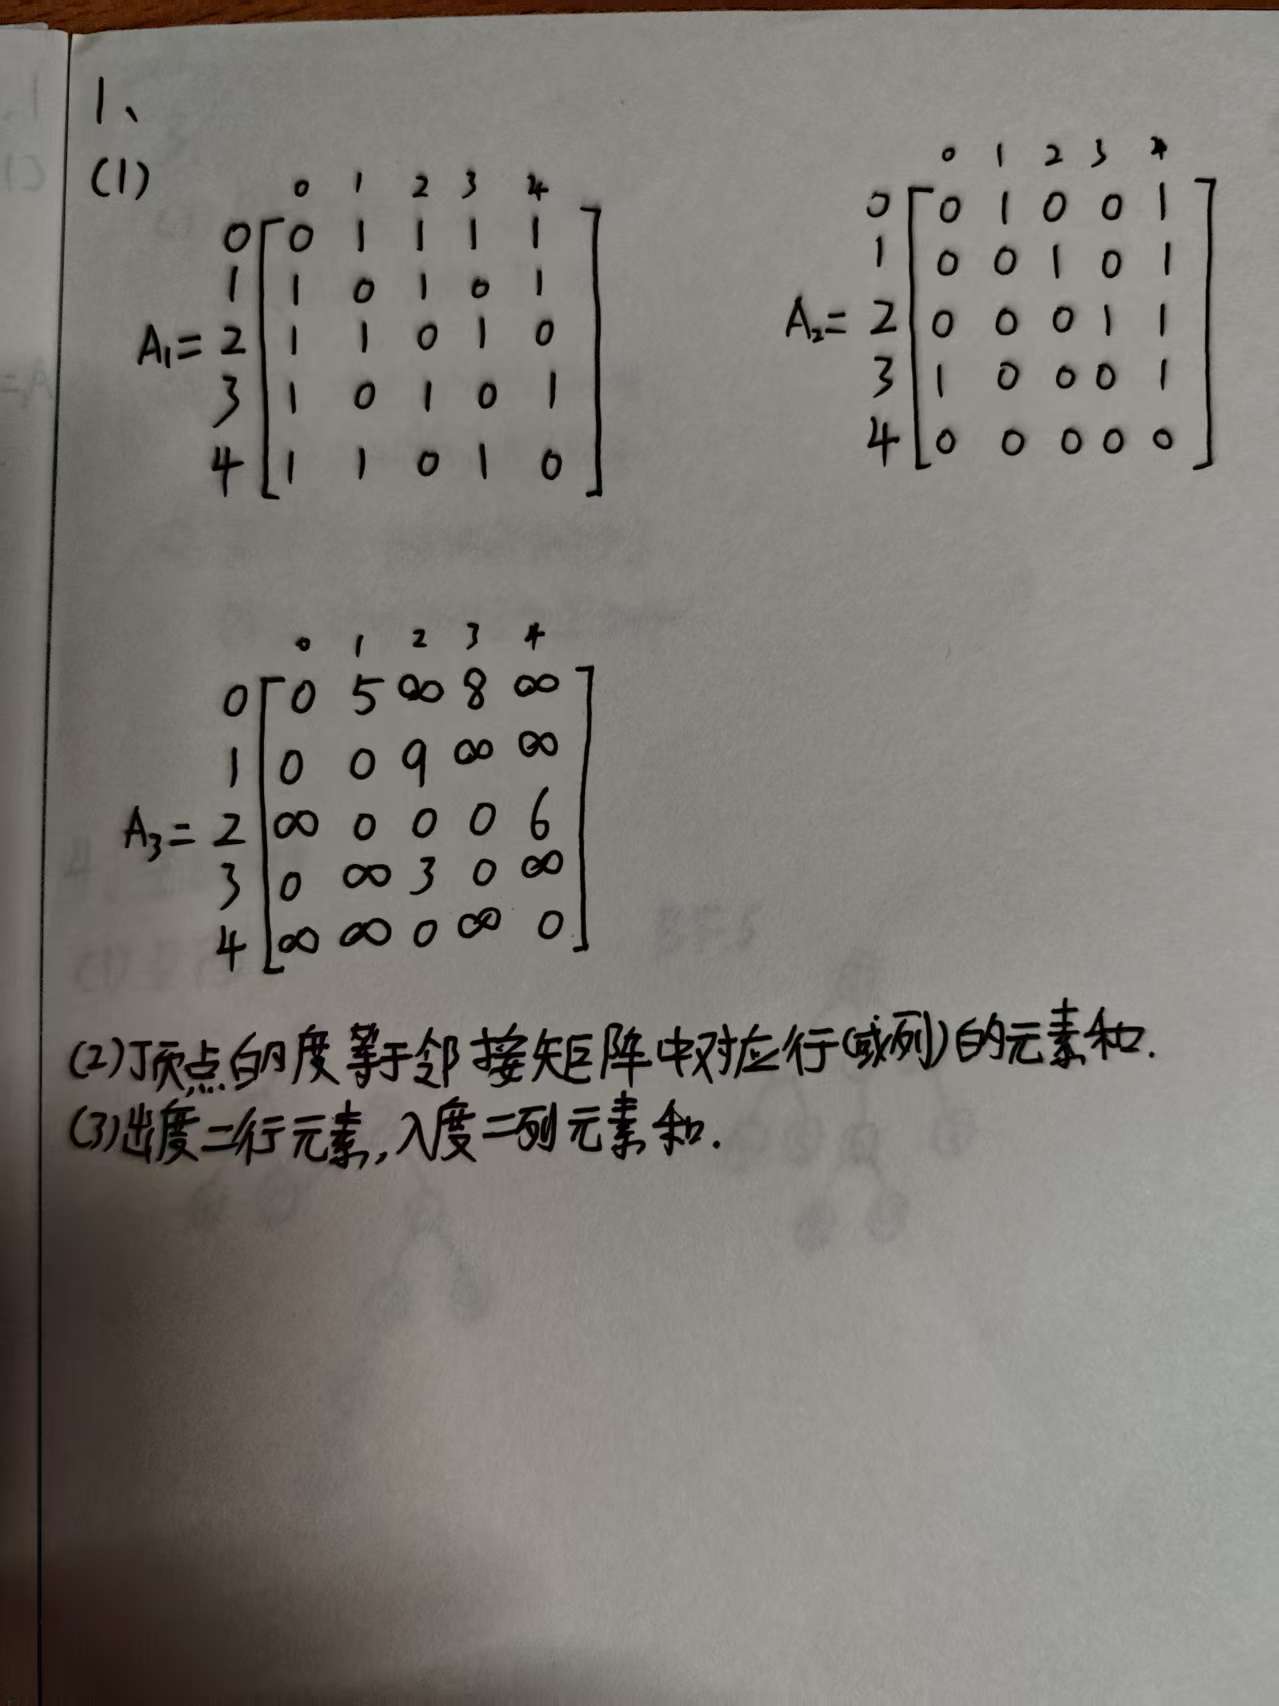 1、
(1)
0 1 2 3 4
0 0 1 1 1 1
1 1 0 1 0 1
A₁= 2 1 1 0 1 0
3 1 0 1 0 1
4 1 1 0 1 0
0 1 2 3 4
0 0 1 0 0 1
1 0 0 1 0 1
A₂= 2 0 0 0 1 1
3 1 0 0 0 1
4 0 0 0 0 0
0 1 2 3 4
0 0 5 ∞ 8 ∞
1 0 0 9 ∞ ∞
A₃= 2 ∞ 0 0 0 6
3 0 ∞ 3 0 ∞
4 ∞ ∞ 0 ∞ 0
(2)顶点的度等于邻接矩阵中对应行(或列)的元素和.
(3)出度=行元素,入度=列元素和.